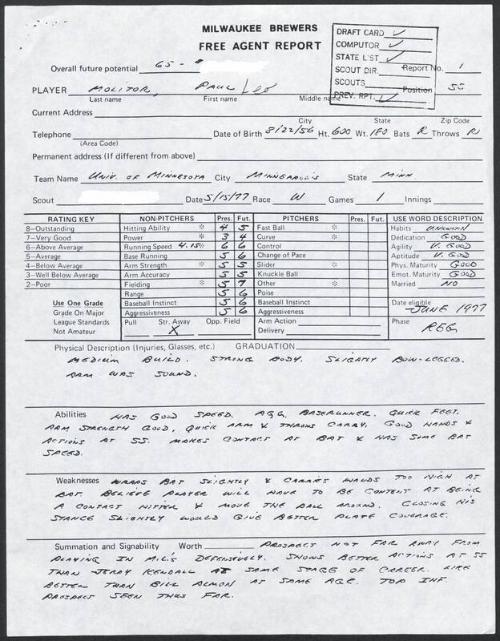 MILWAUKEE BREWERS
FREE AGENT REPORT
DRAFT CARD ✓
COMPUTOR ✓
STATE LIST ✓
SCOUT DIR.
SCOUTS
PREV. RPT. ✓
Overall future potential 65- Report No. 1
PLAYER MOLITOR, PAUL LEO Position SS
Last name First name Middle name
Current Address
City State Zip Code
Telephone Date of Birth 8/22/56 Ht. 600 Wt. 180 Bats R Throws R
(Area Code)
Permanent address (If different from above)
Team Name UNIV. OF MINNESOTA City MINNEAPOLIS State MINN
Scout Date 5/15/77 Race W Games 1 Innings
RATING KEY NON-PITCHERS Pres. Fut. PITCHERS Pres. Fut. USE WORD DESCRIPTION
8-Outstanding Hitting Ability * 4 5 Fast Ball * Habits UNKNOWN
7-Very Good Power * 3 4 Curve * Dedication GOOD
6-Above Average Running Speed 4.15 6 6 Control Agility V. GOOD
5-Average Base Running 5 6 Change of Pace Aptitude V. GOOD
4-Below Average Arm Strength * 5 5 Slider * Phys. Maturity GOOD
3-Well Below Average Arm Accuracy 5 5 Knuckle Ball Emot. Maturity GOOD
2-Poor Fielding * 5 7 Other * Married NO
Range 5 6 Poise
Use One Grade Baseball Instinct 5 6 Baseball Instinct Date eligible
Grade On Major Aggressiveness 5 6 Aggressiveness JUNE 1977
League Standards Pull Str. Away Opp. Field Arm Action Phase
Not Amateur X Delivery REG.
Physical Description (Injuries, Glasses, etc.) GRADUATION
MEDIUM BUILD. STRONG BODY. SLIGHTLY BOW-LEGGED.
ARM WAS SOUND.
Abilities HAS GOOD SPEED. AGG. BASERUNNER. QUICK FEET.
ARM STRENGTH GOOD, QUICK ARM & THROWS CARRY. GOOD HANDS &
ACTIONS AT SS. MAKES CONTACT AT BAT & HAS SOME BAT
SPEED.
Weaknesses WRAPS BAT SLIGHTLY & CARRIES HANDS TOO HIGH AT
BAT. BELIEVE PLAYER WILL HAVE TO BE CONTENT AT BEING
A CONTACT HITTER & MOVE THE BALL AROUND. CLOSING HIS
STANCE SLIGHTLY WOULD GIVE BETTER PLATE COVERAGE.
Summation and Signability Worth PROSPECT NOT FAR AWAY FROM
PLAYING IN M.L.'S DEFENSIVELY. SHOWS BETTER ACTIONS AT SS
THAN JERRY KENDALL AT SAME STAGE OF CAREER. LIKE
BETTER THAN BILL ALMON AT SAME AGE. TOP INF.
PROSPECT SEEN THUS FAR.